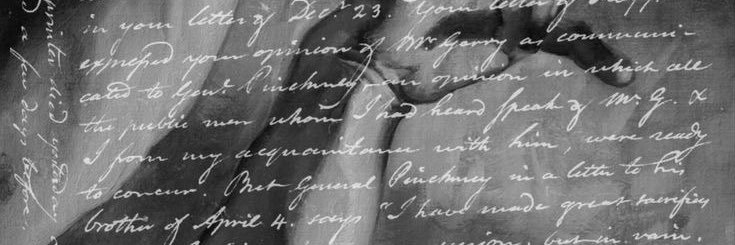 in your letter of Decr. 23. Your letter of
expressed your opinion of Mr Gerry as communi-
cated to Genl. Pinckney - an opinion in which all
the public men whom I had heard speak of Mr. G. &
I from my acquaintance with him, were ready
to concur. But General Pinckney in a letter to his
brother of April 4. says "I have made great sacrifices
but in vain.
died yesterday
a few days before.